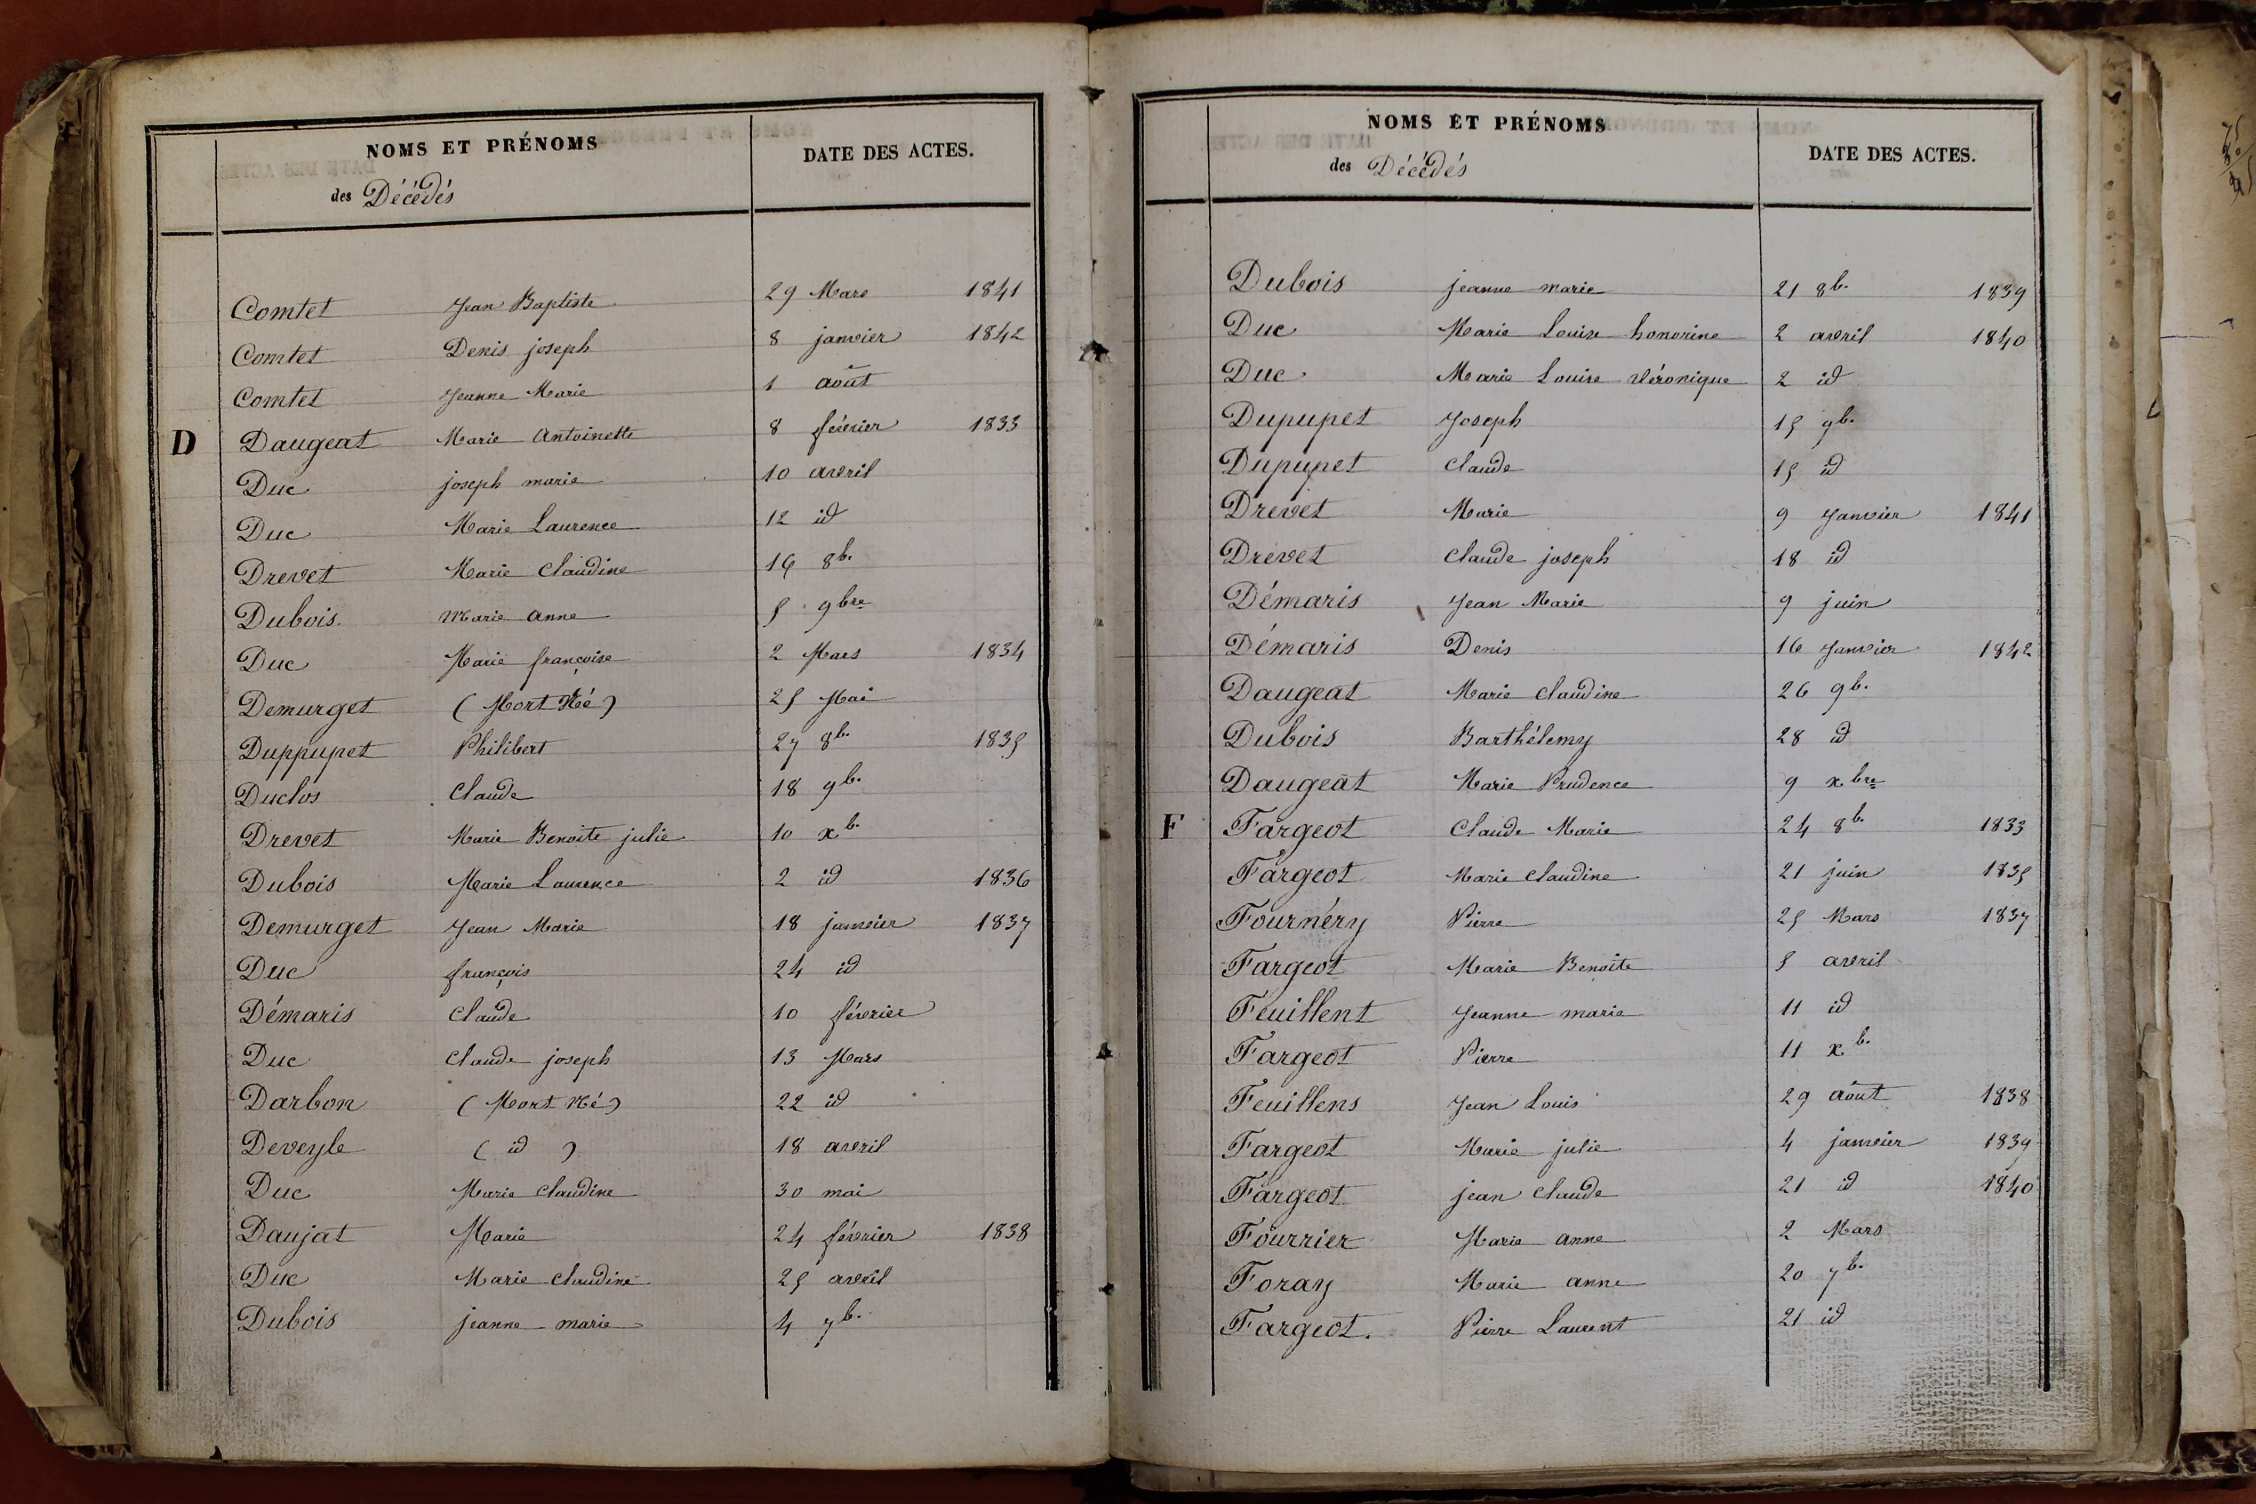 NOMS ET PRÉNOMS
des Décédés
DATE DES ACTES.
Comtet Jean Baptiste 29 Mars 1841
Comtet Denis joseph 8 janvier 1842
Comtet Jeanne Marie 1 août
D Daugeat Marie Antoinette 8 février 1833
Duc joseph marie 10 avril
Duc Marie Laurence 12 id
Drevet Marie Claudine 16 8b.
Dubois. Marie anne 5 9bre
Duc Marie françoise 2 Mars 1834
Demurget (Mort Né) 25 Mai
Duppupet Philibert 27 8b. 1835
Duclos Claude 18 9b.
Drevet Marie Benoite julie 10 xb.
Dubois Marie Laurence 2 id 1836
Demurget Jean Marie 18 janvier 1837
Duc françois 24 id
Démaris Claude 10 février
Duc Claude joseph 13 Mars
Darbon (Mort Né) 22 id
Deveyle ( id ) 18 avril
Duc Marie Claudine 30 mai
Daujat Marie 24 février 1838
Duc Marie Claudine 25 avril
Dubois jeanne marie 4 7b.
NOMS ET PRÉNOMS
des Décédés
DATE DES ACTES.
Dubois jeanne marie 21 8b. 1839
Duc Marie Louise honorine 2 avril 1840
Duc Marie Louise Véronique 2 id
Dupupet Joseph 15 9b.
Dupupet Claude 15 id
Drevet Marie 9 Janvier 1841
Drevet Claude joseph 18 id
Démaris Jean Marie 9 juin
Démaris Denis 16 Janvier 1842
Daugeat Marie Claudine 26 9b.
Dubois Barthélemy 28 id
Daugeat Marie Prudence 9 xbre
F Fargeot Claude Marie 24 8b. 1833
Fargeot Marie Claudine 21 juin 1835
Fournéry Pierre 25 Mars 1837
Fargeot Marie Benoîte 5 avril
Feuillent Jeanne marie 11 id
Fargeot Pierre 11 xb.
Feuillens Jean Louis 29 août 1838
Fargeot Marie julie 4 janvier 1839
Fargeot jean Claude 21 id 1840
Fourrier Marie anne 2 Mars
Foray Marie anne 20 7b.
Fargeot. Pierre Laurent 21 id